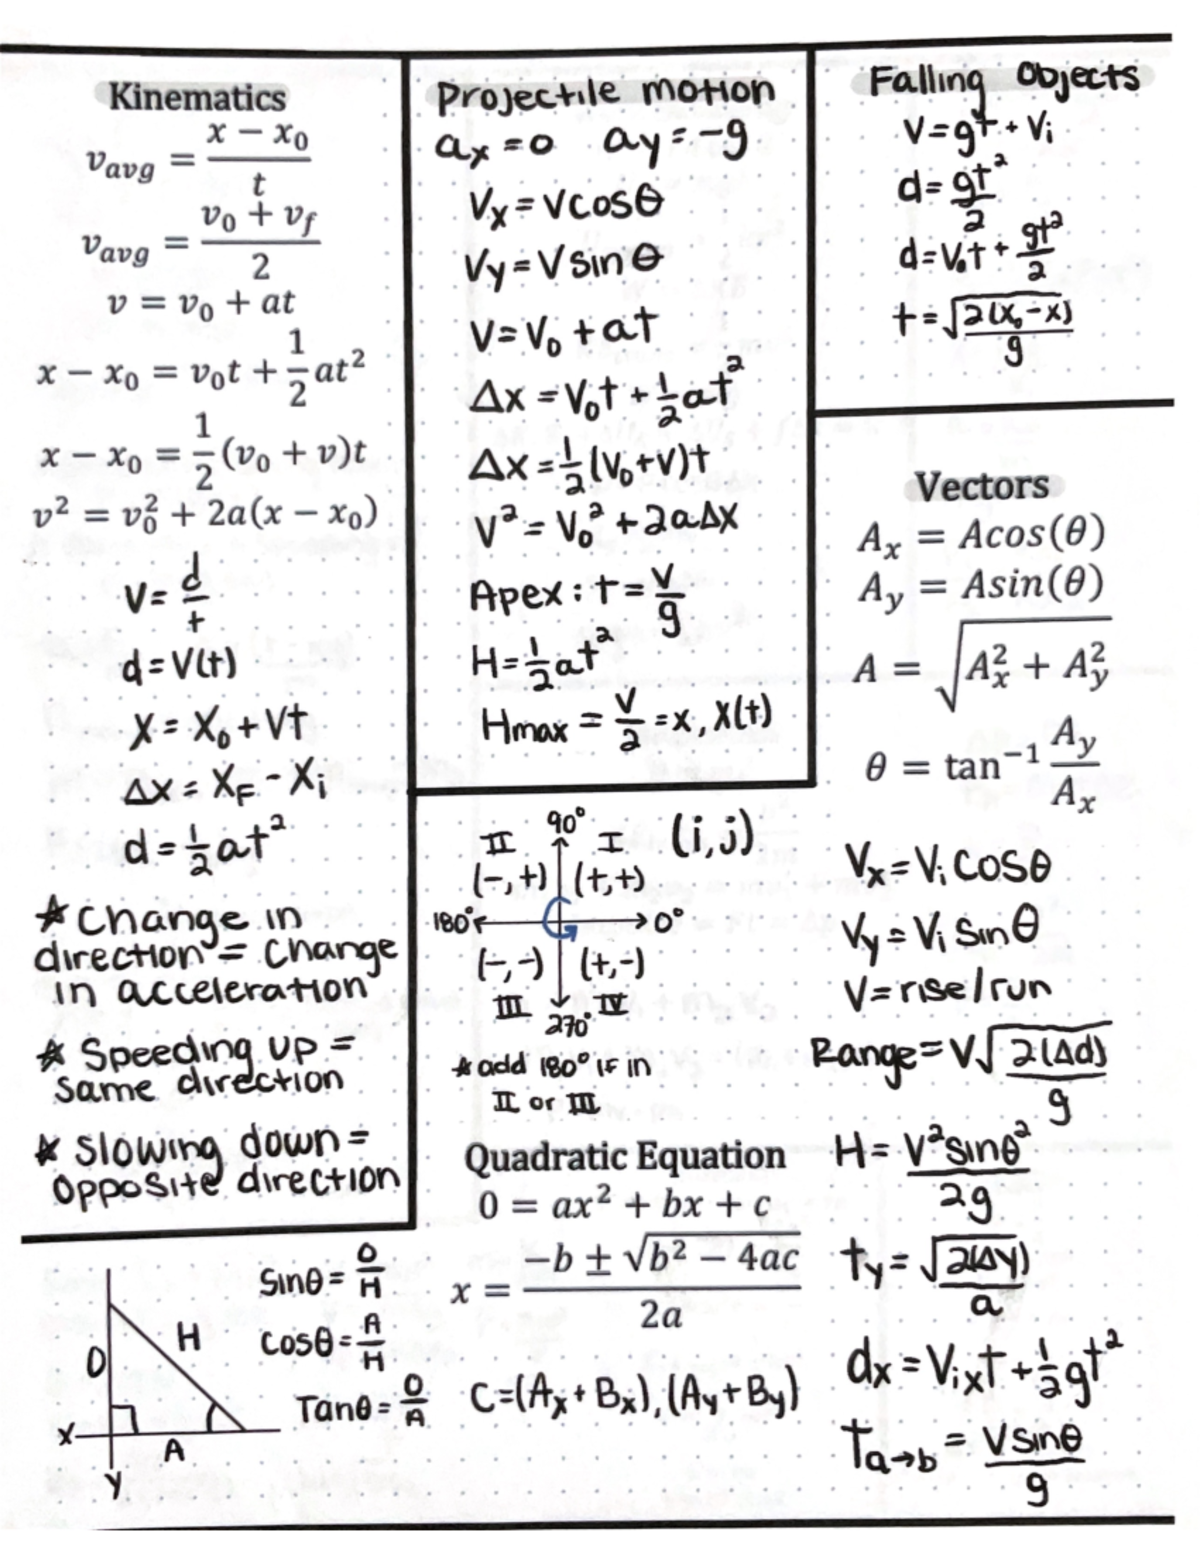 Kinematics
v_avg = (x − x₀)/t
v_avg = (v₀ + v_f)/2
v = v₀ + at
x − x₀ = v₀t + ½at²
x − x₀ = ½(v₀ + v)t
v² = v₀² + 2a(x − x₀)
V = d/t
d = V(t)
X = X₀ + Vt
Δx = X_F - X_i
d = ½at²
* Change in
direction = Change
in acceleration
* Speeding up =
same direction
* Slowing down =
opposite direction
Projectile motion
ax = 0 ay = -g
Vx = Vcosθ
Vy = Vsinθ
V = V₀ + at
Δx = V₀t + ½at²
Δx = ½(V₀+V)t
V² = V₀² + 2aΔx
Apex: t = V/g
H = ½at²
Hmax = V/2 = x, X(t)
Falling Objects
V = gt + Vi
d = gt²/2
d = V₀t + gt²/2
t = √2(X₀-X)/g
Vectors
A_x = Acos(θ)
A_y = Asin(θ)
A = √(A_x² + A_y²)
θ = tan⁻¹ A_y/A_x
Vx = Vi cosθ
Vy = Vi sinθ
V = rise/run
Range = V√2(Δd)/g
H = V²sinθ²/2g
ty = √2(Δy)/a
dx = Vixt + ½gt²
Ta→b = Vsinθ/g
90° (i,j)
II I
(-,+) (+,+)
180° 0°
(-,-) (+,-)
III 270° IV
* add 180° if in
II or III
Quadratic Equation
0 = ax² + bx + c
x = (−b ± √(b² − 4ac))/2a
C=(Ax+Bx),(Ay+By)
O H
X A
Y
sinθ = O/H
cosθ = A/H
Tanθ = O/A